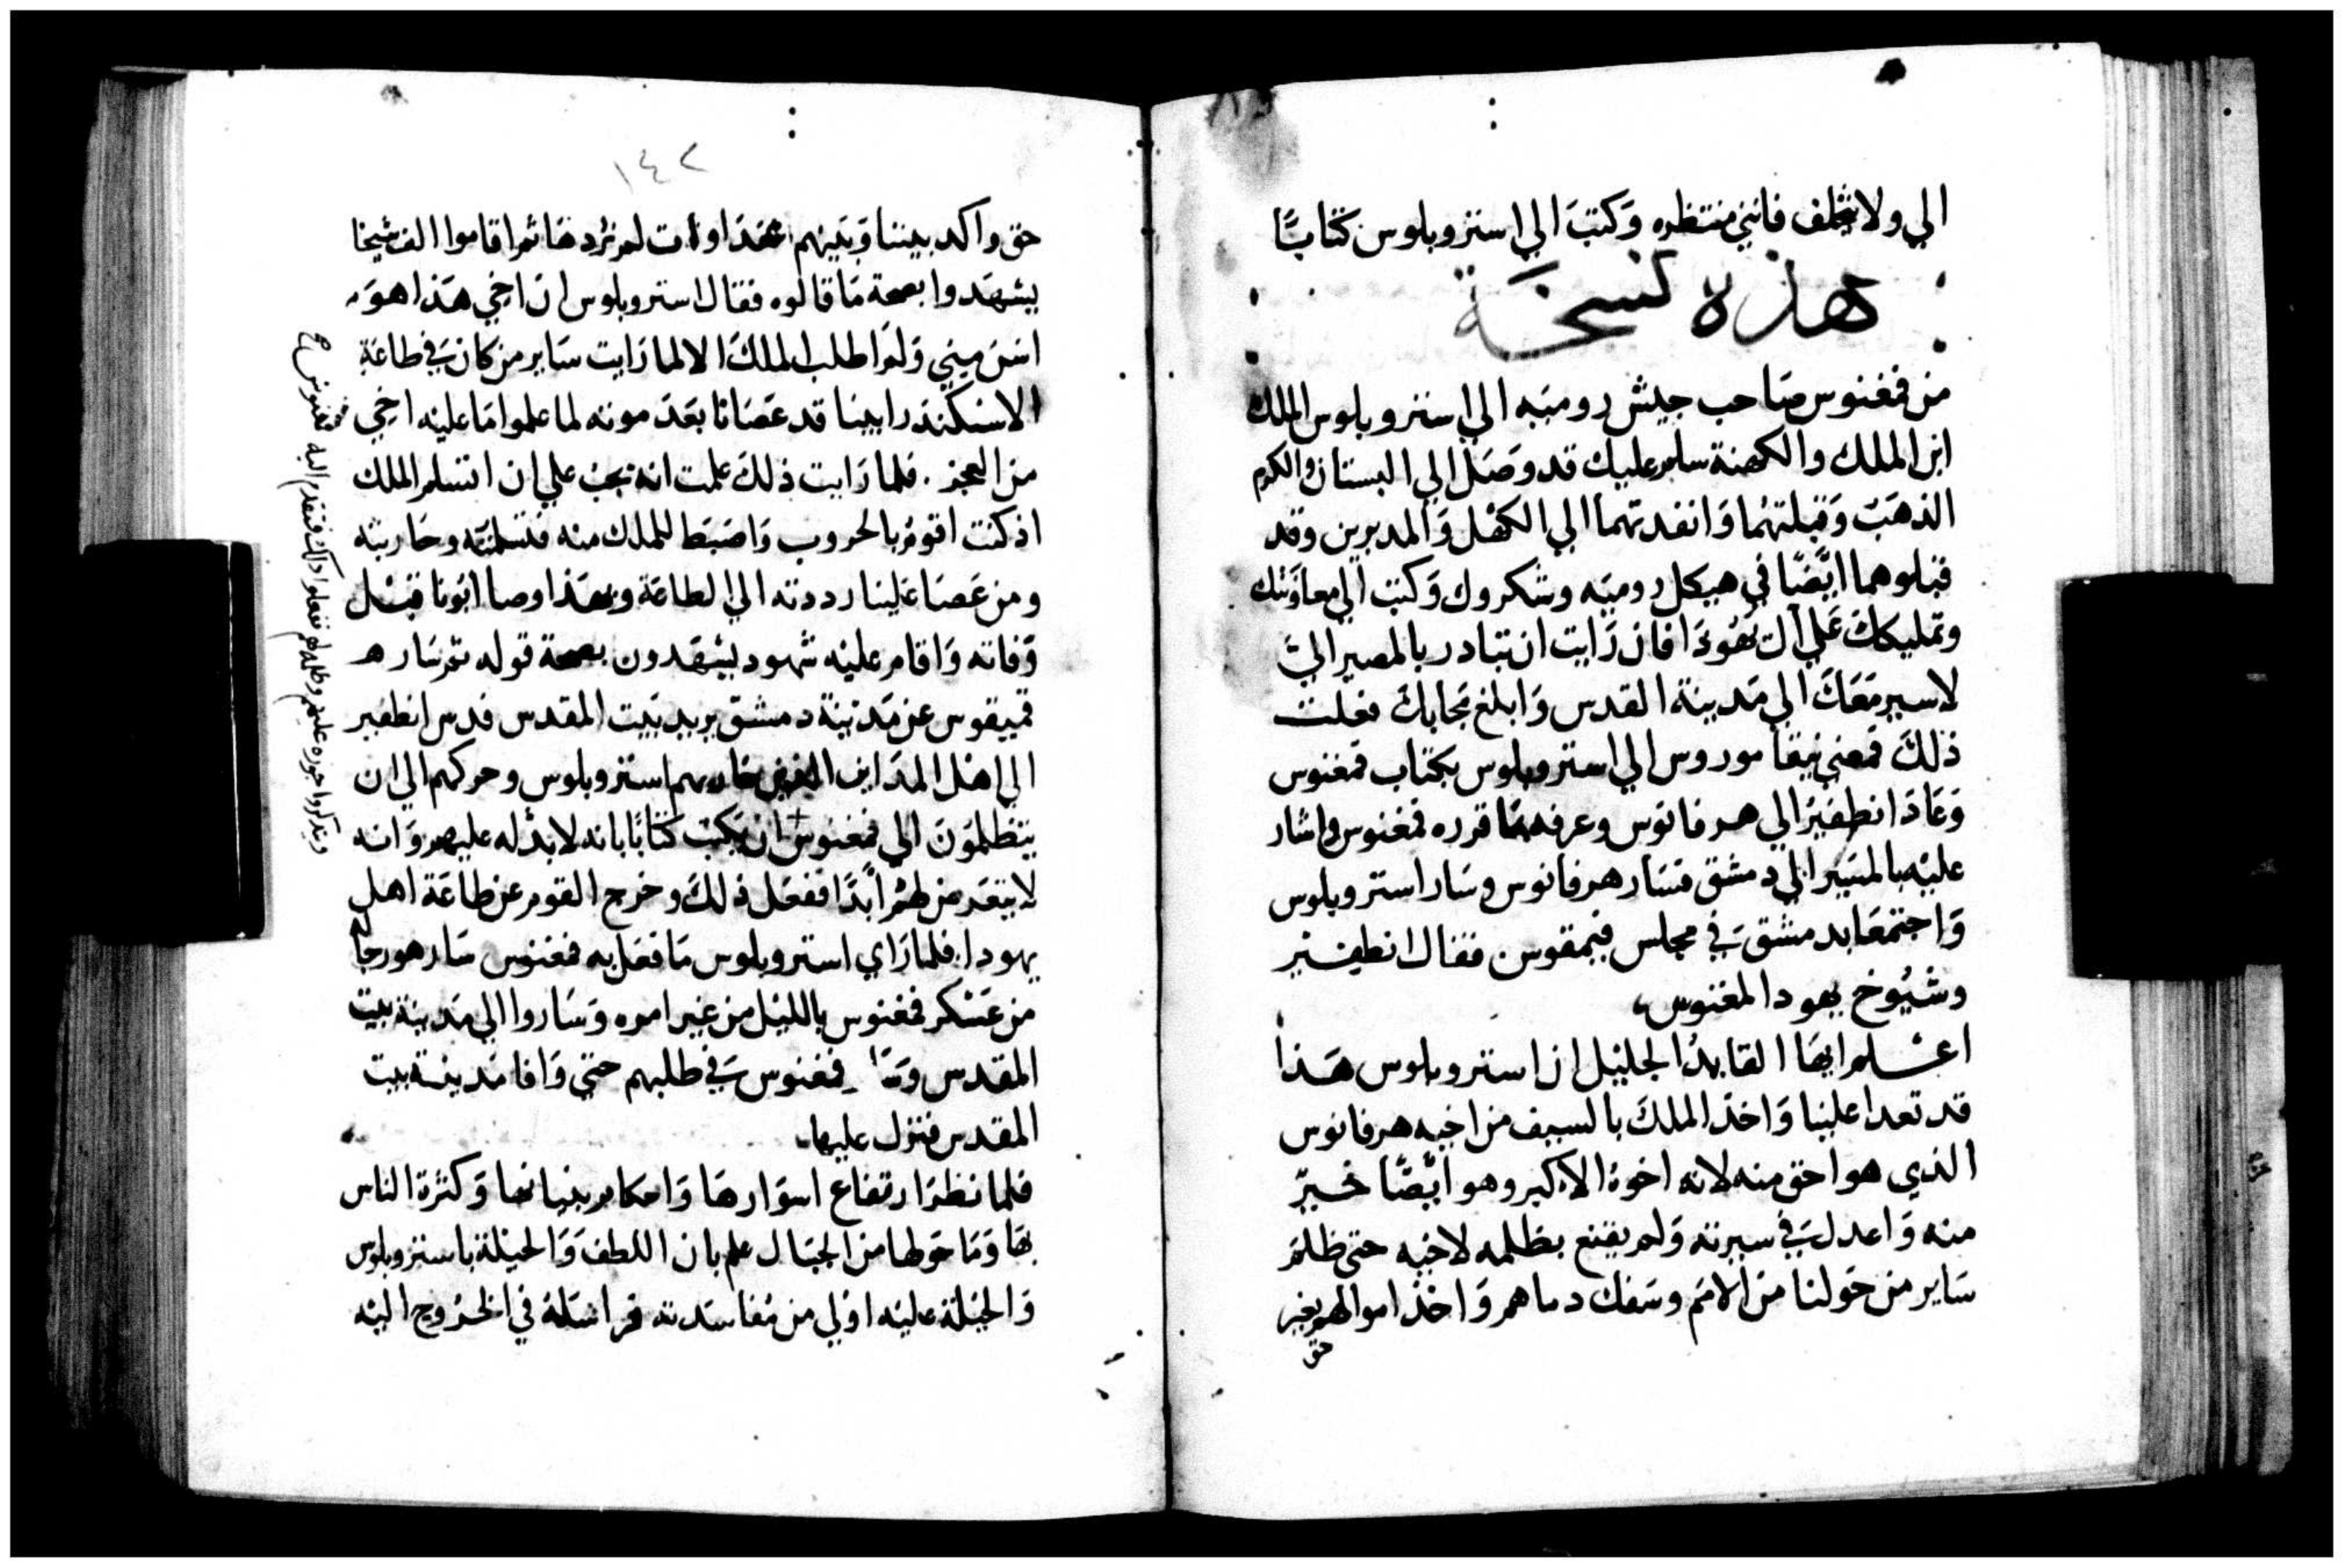 الي ولا تخلف فانني منتظره وكتب الي استروبلوس كتابًا
هذه نسخة
من فمغنوس صاحب جيش روميه الي استروبلوس الملك
ابن الملك والكهنة سلم عليك قد وصل الي البستان والكرم
الذهب وقبلتهما وانفدتهما الي الكهل والمدبرين وقد
قبلوهما ايضًا في هيكل روميه وشكروك وكتب الي بمعاونتك
وتمليكك علي ال يهودا فان رايت ان تبادر بالمصير الي
لاسير معك الي مدينة القدس وابلغ محابك فعلت
ذلك فمضي نيقاموروس الي استروبلوس بكتاب فمغنوس
وعاد انطفير الي هرفانوس وعرفه بما قرره فمغنوس واشار
عليه بالمسير الي دمشق فسار هرفانوس وسار استروبلوس
واجتمعا بدمشق في مجلس فيمقوس فقال انطيفير
وشيوخ يهودا لمغنوس
اعلم ايها القايد الجليل ان استروبلوس هذا
قد تعدا علينا واخذ الملك بالسيف من اخيه هرفانوس
الذي هو احق منه لانه اخوه الاكبر وهو ايضًا خير
منه واعدل في سيرته ولم يقنع بظلمه لاخيه حتي ظلم
ساير من حولنا من الامم وسفك دماهم واخذ اموالهم بغير
حق
١٤٢
حق واكد بيننا وبينهم عداوات لم نردها ثم اقاموا الف شيخا
يشهدوا بصحة ما قالوه فقال استروبلوس ان اخي هذا هو
اسن مني ولم اطلب الملك الا لما رايت ساير من كان في طاعة
الاسكندر ابينا قد عصانا بعد موته لما علموا ما عليه اخي
من العجز . فلما رايت ذلك علمت انه يجب علي ان اتسلم الملك
اذ كنت اقوم بالحروب واضبط للملك منه فتسلمته وحاربته
ومن عصا علينا رددته الي الطاعة وبهذا وصا ابونا قبل
وفاته واقام عليه شهود يشهدون بصحة قوله ثم سار
قميقوس عن مدينة دمشق يريد بيت المقدس فدس انطفير
الي اهل المداين الذين حاربهم استروبلوس وحركهم الي ان
يتظلمون الي فمغنوس ان يكتب كتابًا بانه لا يد له عليهم وانه
لا يتعرض لهم ابدًا ففعل ذلك وخرج القوم عن طاعة اهل
يهودا . فلما راي استروبلوس ما فعل به فمغنوس سار هو ورجاله
من عسكر فمغنوس بالليل من غير امره وساروا الي مدينة بيت
المقدس وسار فمغنوس في طلبهم حتي وافا مدينة بيت
المقدس فنزل عليها
فلما نظر ارتفاع اسوارها واحكام بنيانها وكثرة الناس
بها وما حولها من الجبال علم بان اللطف والحيلة باستروبلوس
والحيلة عليه اولي من مفاسدته فراسله في الخروج اليه
ويذكروا جوره عليهم وظلمه لهم ففعلوا ذلك فتقدم اليه فمغنوس